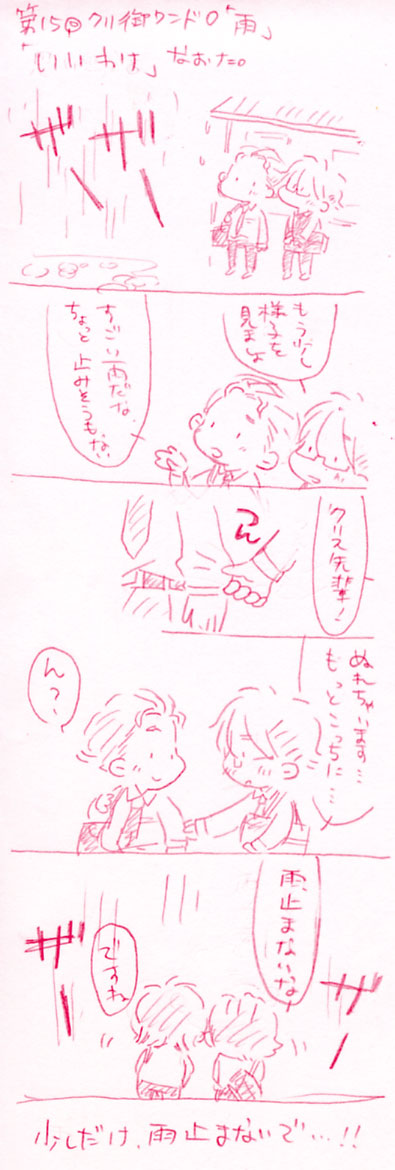 第15回クリ御ワンドロ「雨」
「いいわけ」なおた。
ザザ
ーー
もう少し
様子を
見ましょ
すごい雨だな、
ちょっと止みそうもない
クリス先輩!
つん
ぬれちゃいます…
もっとこっちに…
ん?
雨、止まないな
ですね
ザー
ザー
少しだけ、雨止まないで…!!